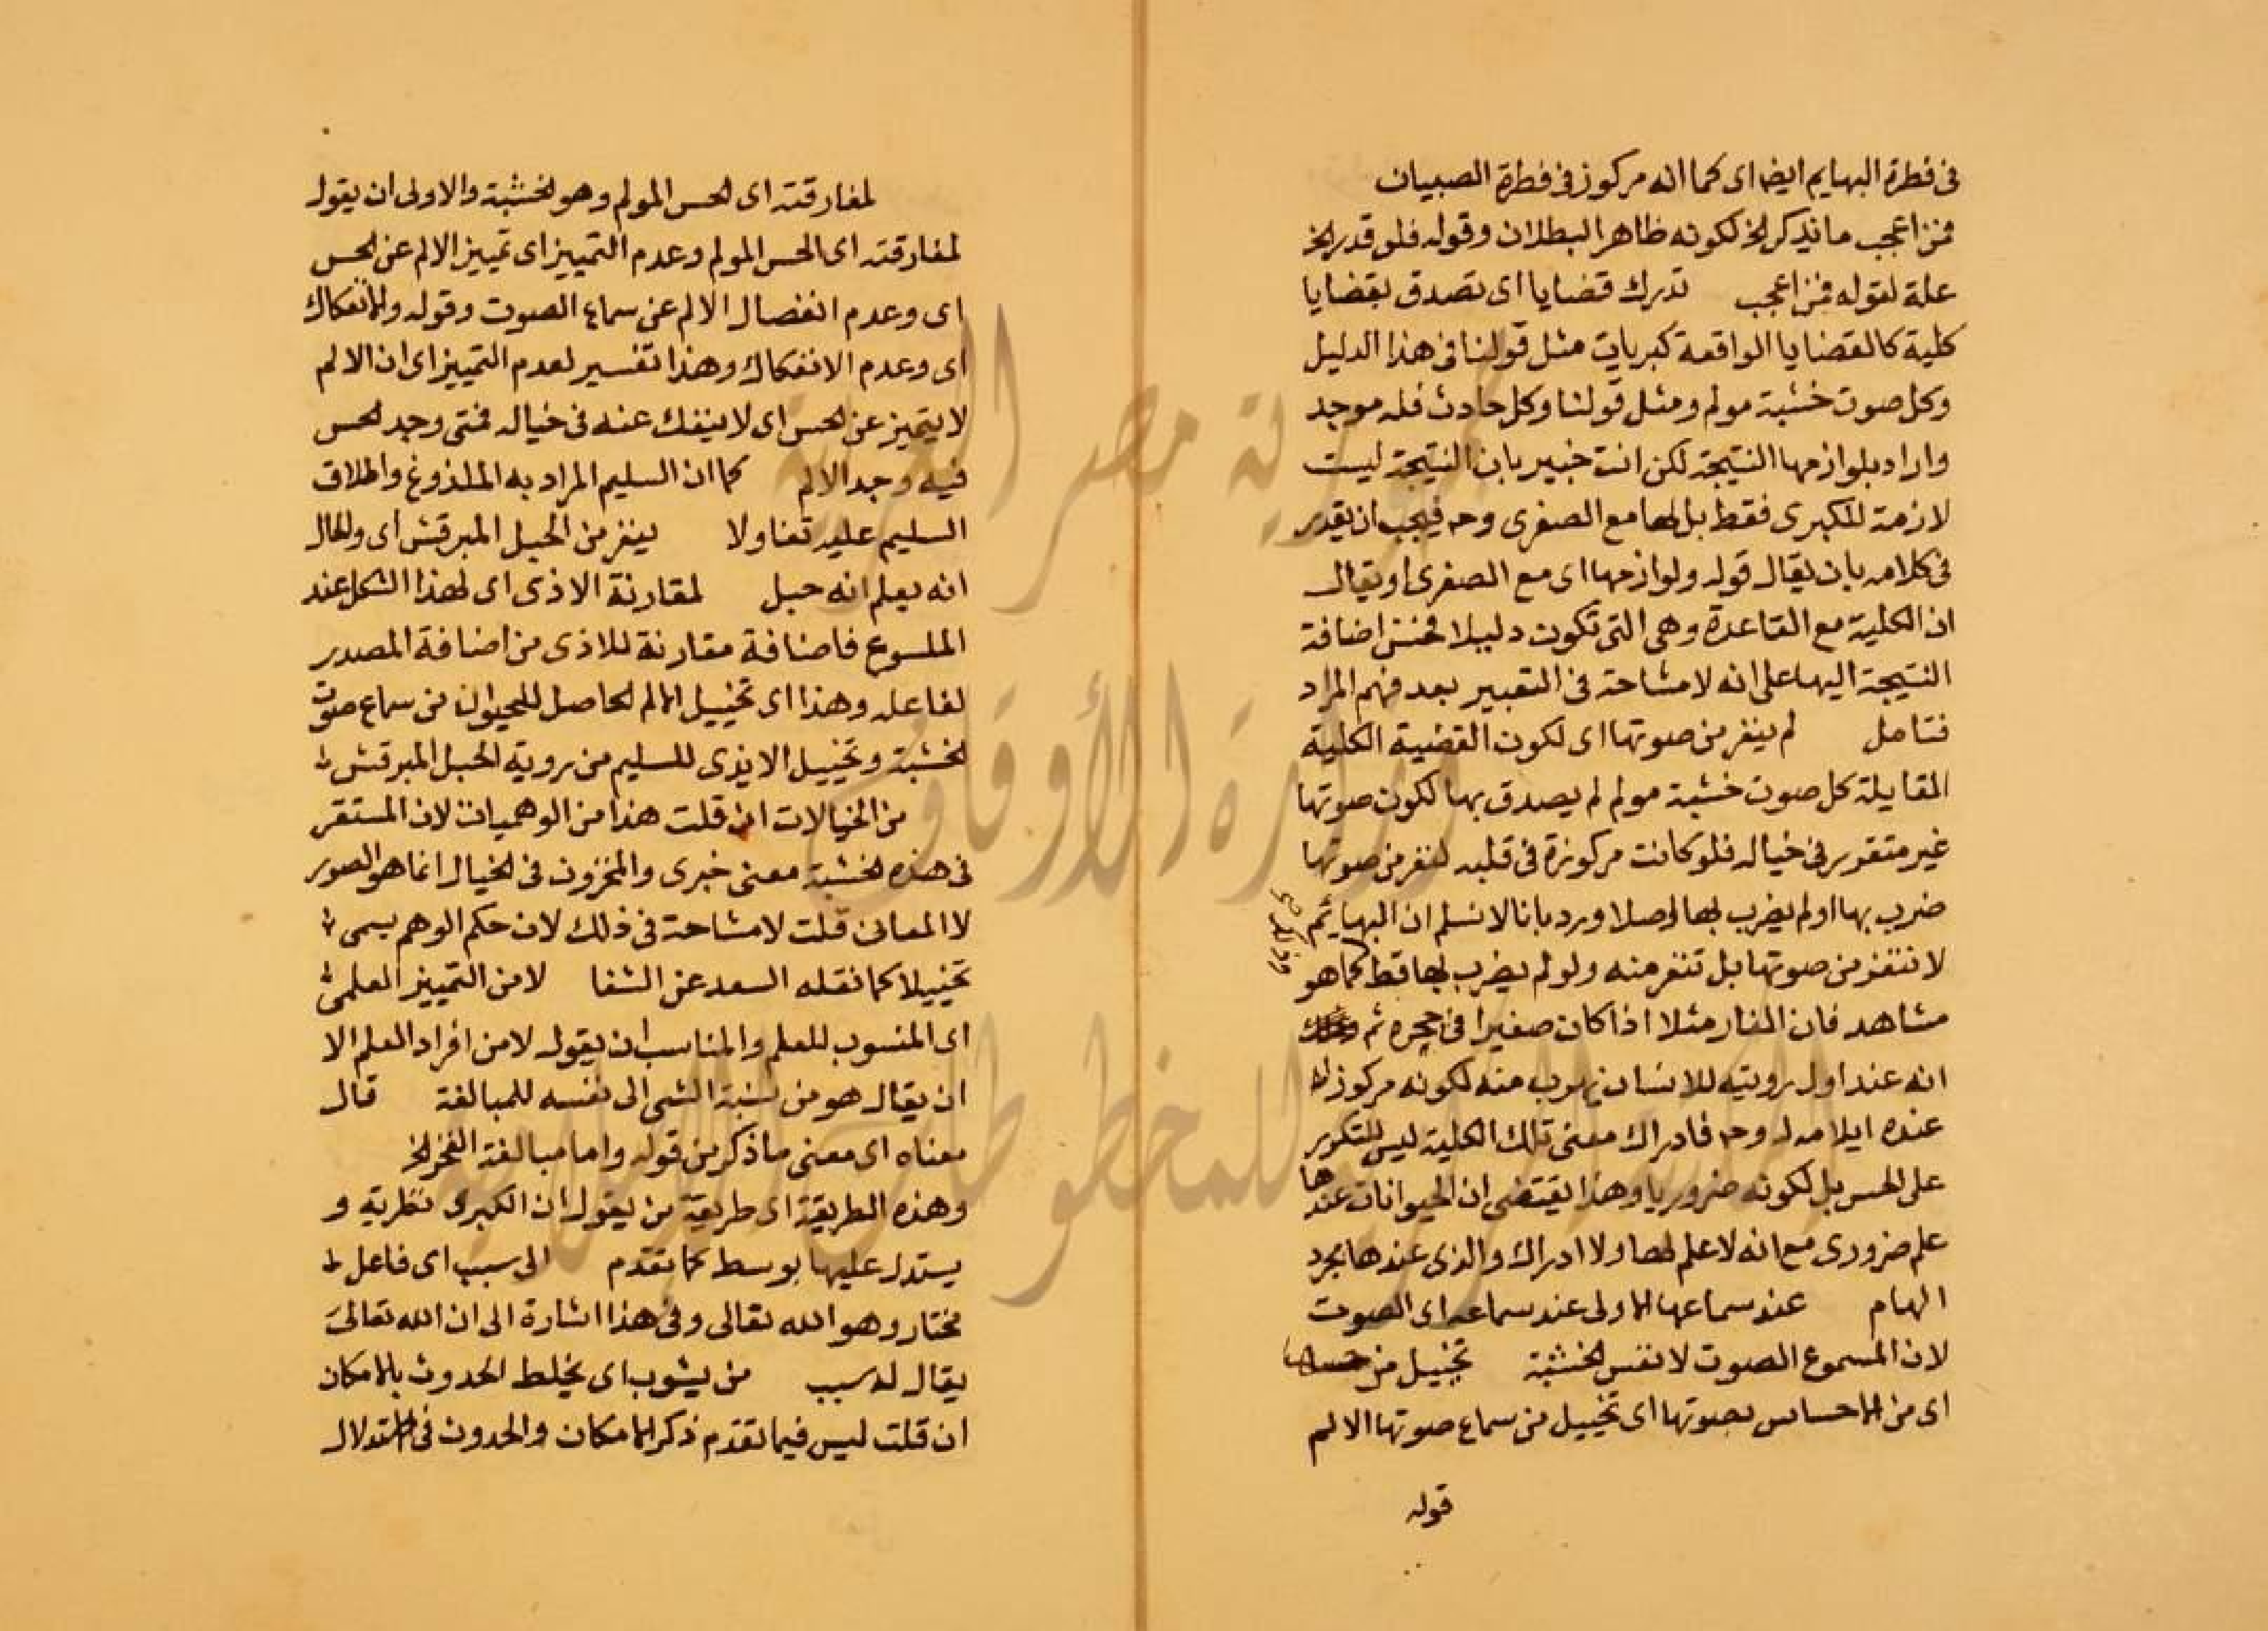 فى فطرة البهايم ايضا اى كما انه مركوز فى فطرة الصبيان
فمن اعجب ما نذكر الخ لكونه ظاهر البطلان وقوله فلو قدر الخ
علة لقوله فمن اعجب تدرك قضايا اى تصدق بقضايا
كلية كالقضايا الواقعة كبريات مثل قولنا فى هذا الدليل
وكل صوت خشبة مولم ومثل قولنا وكل حادث فله موجد
واراد بلوازمها النتيجة لكن انت خبير بان النتيجة ليست
لازمة للكبرى فقط بل لها مع الصغرى وح فيجب ان يقدر
فى كلامه بان يقال قوله ولوازمها اى مع الصغرى او يقال
ان الكلية مع القاعدة وهى التى تكون دليلا فحسن اضافة
النتيجة اليها على انه لا مشاحة فى التعبير بعد فهم المراد
فتامل لم ينفر من صوتها اى لكون القضية الكلية
القايلة كل صوت خشبة مولم لم يصدق بها لكون صوتها
غير متقرر فى خياله فلو كانت مركوزة فى قلبه لنفر من صوتها
ضرب بها او لم يضرب بها اصلا ورد بانا لا نسلم ان البهائم
لا تنفر من صوتها بل تنفر منه ولو لم يضرب بها قط كما هو
مشاهد فان الفار مثلا اذا كان صغيرا فى جحره ثم
انه عند اول رويته للانسان يهرب منه لكونه مركوزا
عنده ايلامه له وح فادراك معنى تلك الكلية ليس للتكرر
على الحس بل لكونه ضروريا وهذا يقتضى ان الحيوانات عندها
علم ضرورى مع انه لا علم لها ولا ادراك والذى عندها مجرد
الهام عند سماعها الاولى عند سماعه اى الصوت
لان المسموع الصوت لا نفس الخشبة تخييل من
اى من الاحساس بصوتها اى تخييل من سماع صوتها الالم
قوله
لمفارقته اى الحس المولم وهو الخشبة والاولى ان يقول
لمفارقته اى الحس المولم وعدم التمييز اى تمييز الالم عن الحس
اى وعدم انفصال الالم عن سماع الصوت وقوله والانفكاك
اى وعدم الانفكاك وهذا تفسير لعدم التمييز اى ان الالم
لا يتميز عن الحس اى لا ينفك عنه فى خياله فمتى وجد الحس
فيه وجد الالم كما ان السليم المراد به الملذوغ واطلاق
السليم عليه تفاولا ينفر من الحبل المبرقش اى والحال
انه يعلم انه حبل لمقارنة الاذى اى لهذا الشكل عند
الملسوع فاضافة مقارنة للاذى من اضافة المصدر
لفاعله وهذا اى تخييل الالم الحاصل للحيوان من سماع صوت
الخشبة وتخييل الايذى للسليم من روية الحبل المبرقش
من الخيالات ان قلت هذا من الوهميات لان المستقر
فى هذه الخشبة معنى خبرى والمخزون فى الخيال انما هو الصور
لا المعانى قلت لا مشاحة فى ذلك لان حكم الوهم يسمى
تخييلا كما نقله السعد عن الشفا لا من التمييز العلمى
اى المنسوب للعلم والمناسب ان يقول لا من افراد العلم الا
ان يقال هو من نسبة الشى الى نفسه للمبالغة قال
معناه اى معنى ما ذكر من قوله واما مبالغة الفخر الخ
وهذه الطريقة اى طريقة من يقول ان الكبرى نظرية و
يستدل عليها بوسط كما تقدم الى سبب اى فاعل
مختار وهو الله تعالى وفى هذا اشارة الى ان الله تعالى
يقال له سبب من يشوب اى يخلط الحدوث بالامكان
ان قلت ليس فيما تقدم ذكر الامكان والحدوث فى الاستدلال